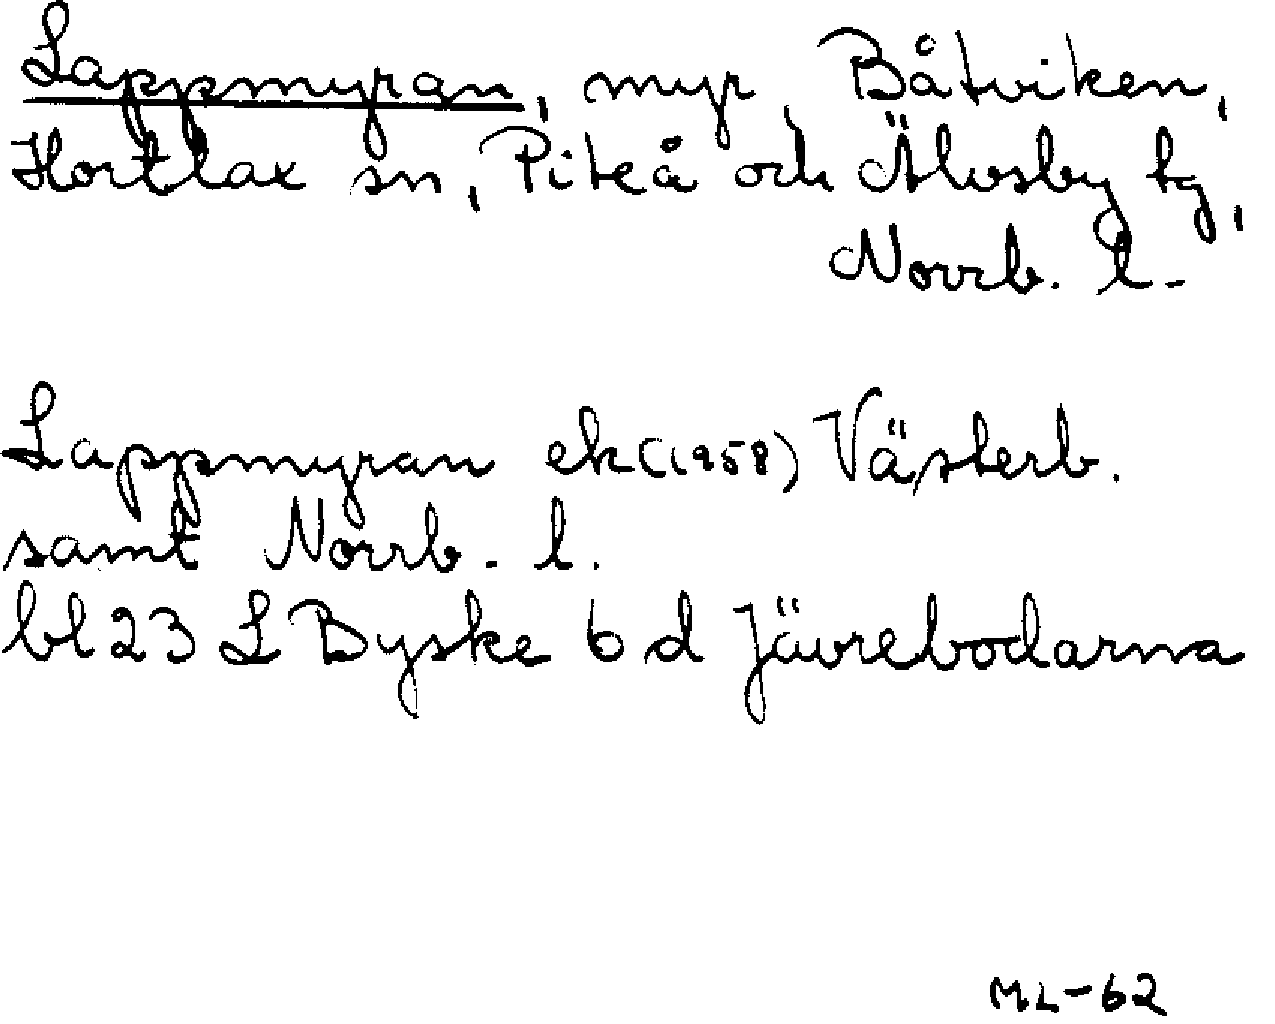 Lappmyran, myr, Båtviken,
Hortlax sn, Piteå och Älvsby tg,
Norrb. l.
Lappmyran ek (1958) Västerb.
samt Norrb. l.
bl 23 L Byske 6 d Jävrebodarna
ML-62